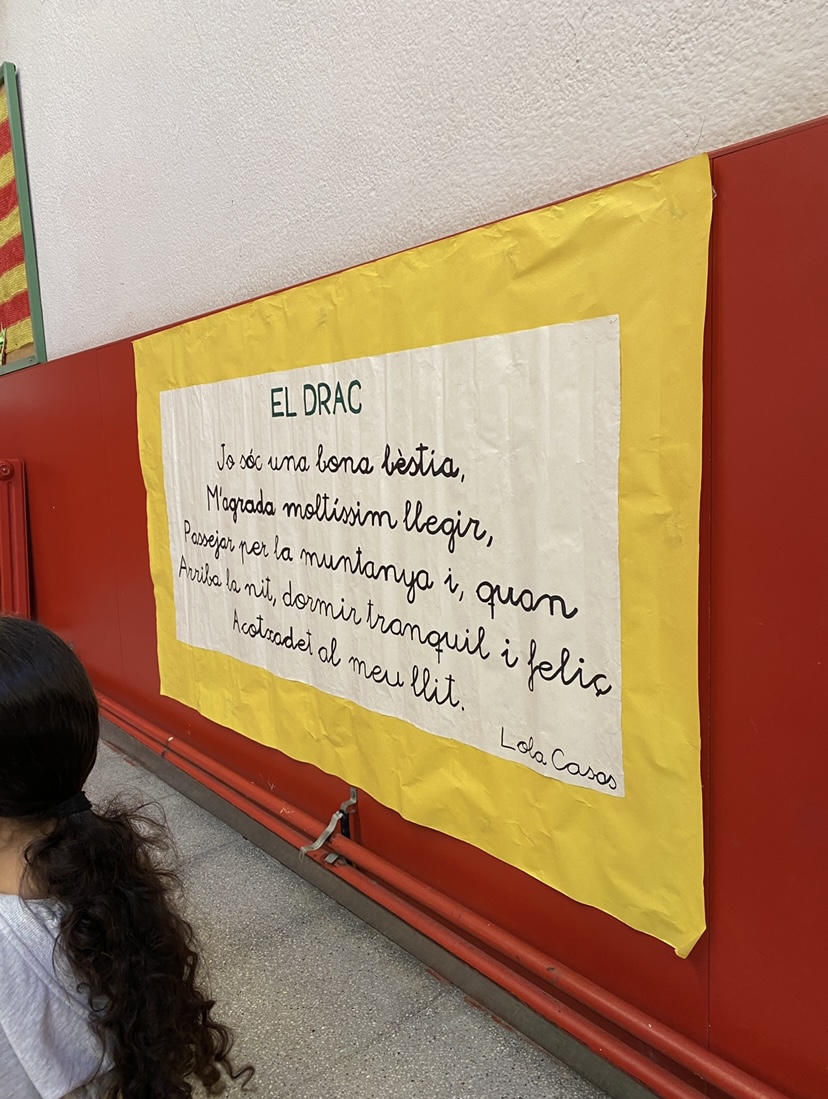 EL DRAC
Jo sóc una bona bèstia,
M'agrada moltíssim llegir,
Passejar per la muntanya i, quan
Arriba la nit, dormir tranquil i feliç
Acotxadet al meu llit.
Lola Casas